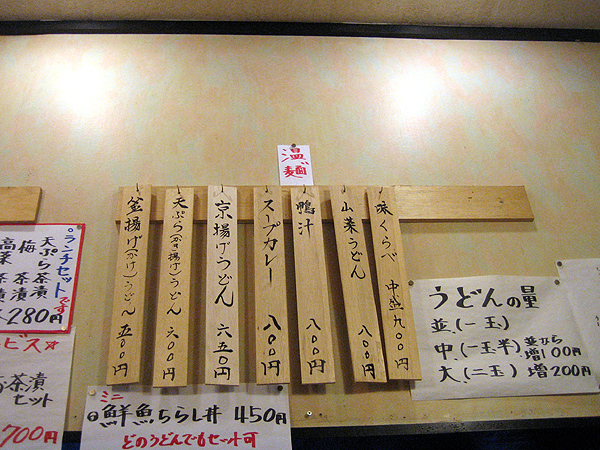 温麺
味くらべ 中盛 九〇〇円
山菜うどん 八〇〇円
鴨汁 八〇〇円
スープカレー 八〇〇円
京揚げうどん 六五〇円
天ぷら(かき揚げ)うどん 六〇〇円
釜揚げ(かけ)うどん 五〇〇円
うどんの量
並(一玉)
中(一玉半)並から増100円
大(二玉)増200円
ミニ
鮮魚ちらし丼 450円
どのうどんでもセット可
ランチセットです
天ぷら茶漬
梅 茶漬
高菜 茶漬
280円
ビス☆
お茶漬
セット
700円